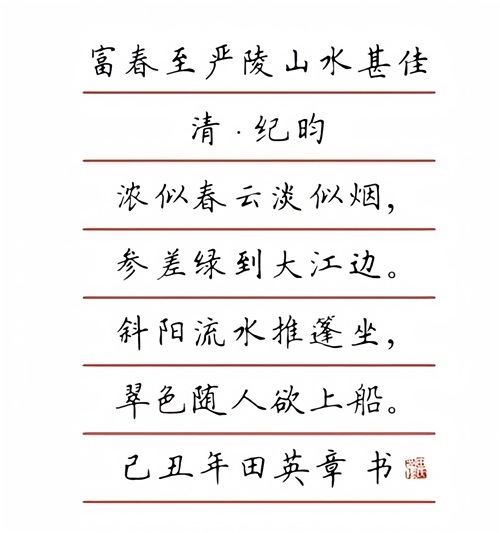 富春至严陵山水甚佳
清·纪昀
浓似春云淡似烟，
参差绿到大江边。
斜阳流水推篷坐，
翠色随人欲上船。
己丑年田英章书